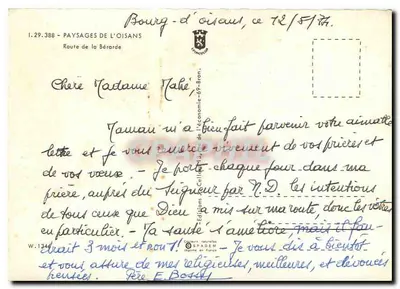 Bourg-d'oisans, ce 12/5/74.
I. 29.388 - PAYSAGES DE L'OISANS
Route de la Bérarde
Chère Madame Mahé,
Maman m'a bien fait parvenir votre aimable
lettre et je vous remercie vivement de vos prières et
de vos vœux. Je porte chaque jour dans ma
prière, auprès du Seigneur par N.D. les intentions
de tous ceux que Dieu a mis sur ma route, dont les vôtres
en particulier. - Ma santé s'améliore, mais il fau-
drait 3 mois et non 1! - Je vous dis à bientôt
et vous assure de mes religieuses, meilleures, et dévouées
pensées. Père E.
W. 134